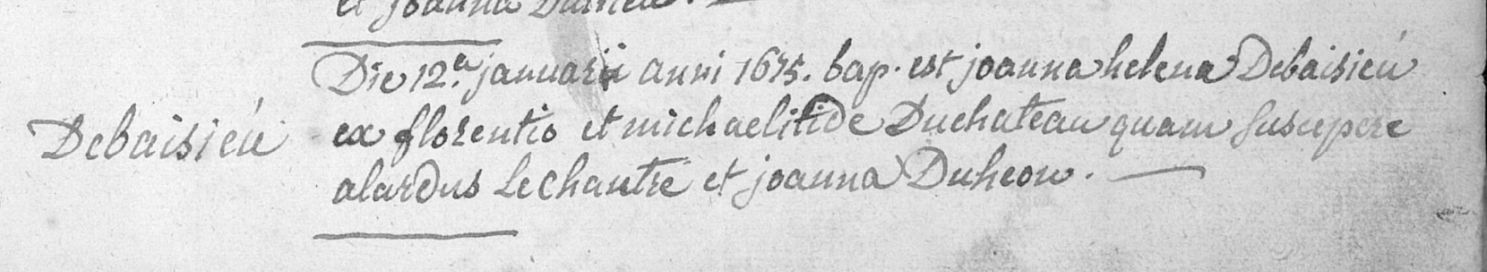 et joanna
Die 12.a januarii anni 1675. bap. est joanna helena Debaisieú
Debaisieú
ex florentio et michaelitide Duchateau quam suscepere
alardus Lechantre et joanna Duheon.